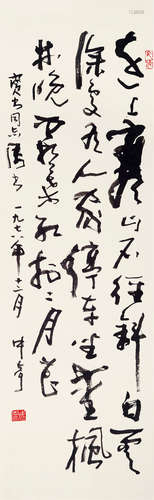 远上寒山石径斜白云
深处有人家停车坐爱枫
林晚霜叶红于二月花
同志 一九七八年十二月